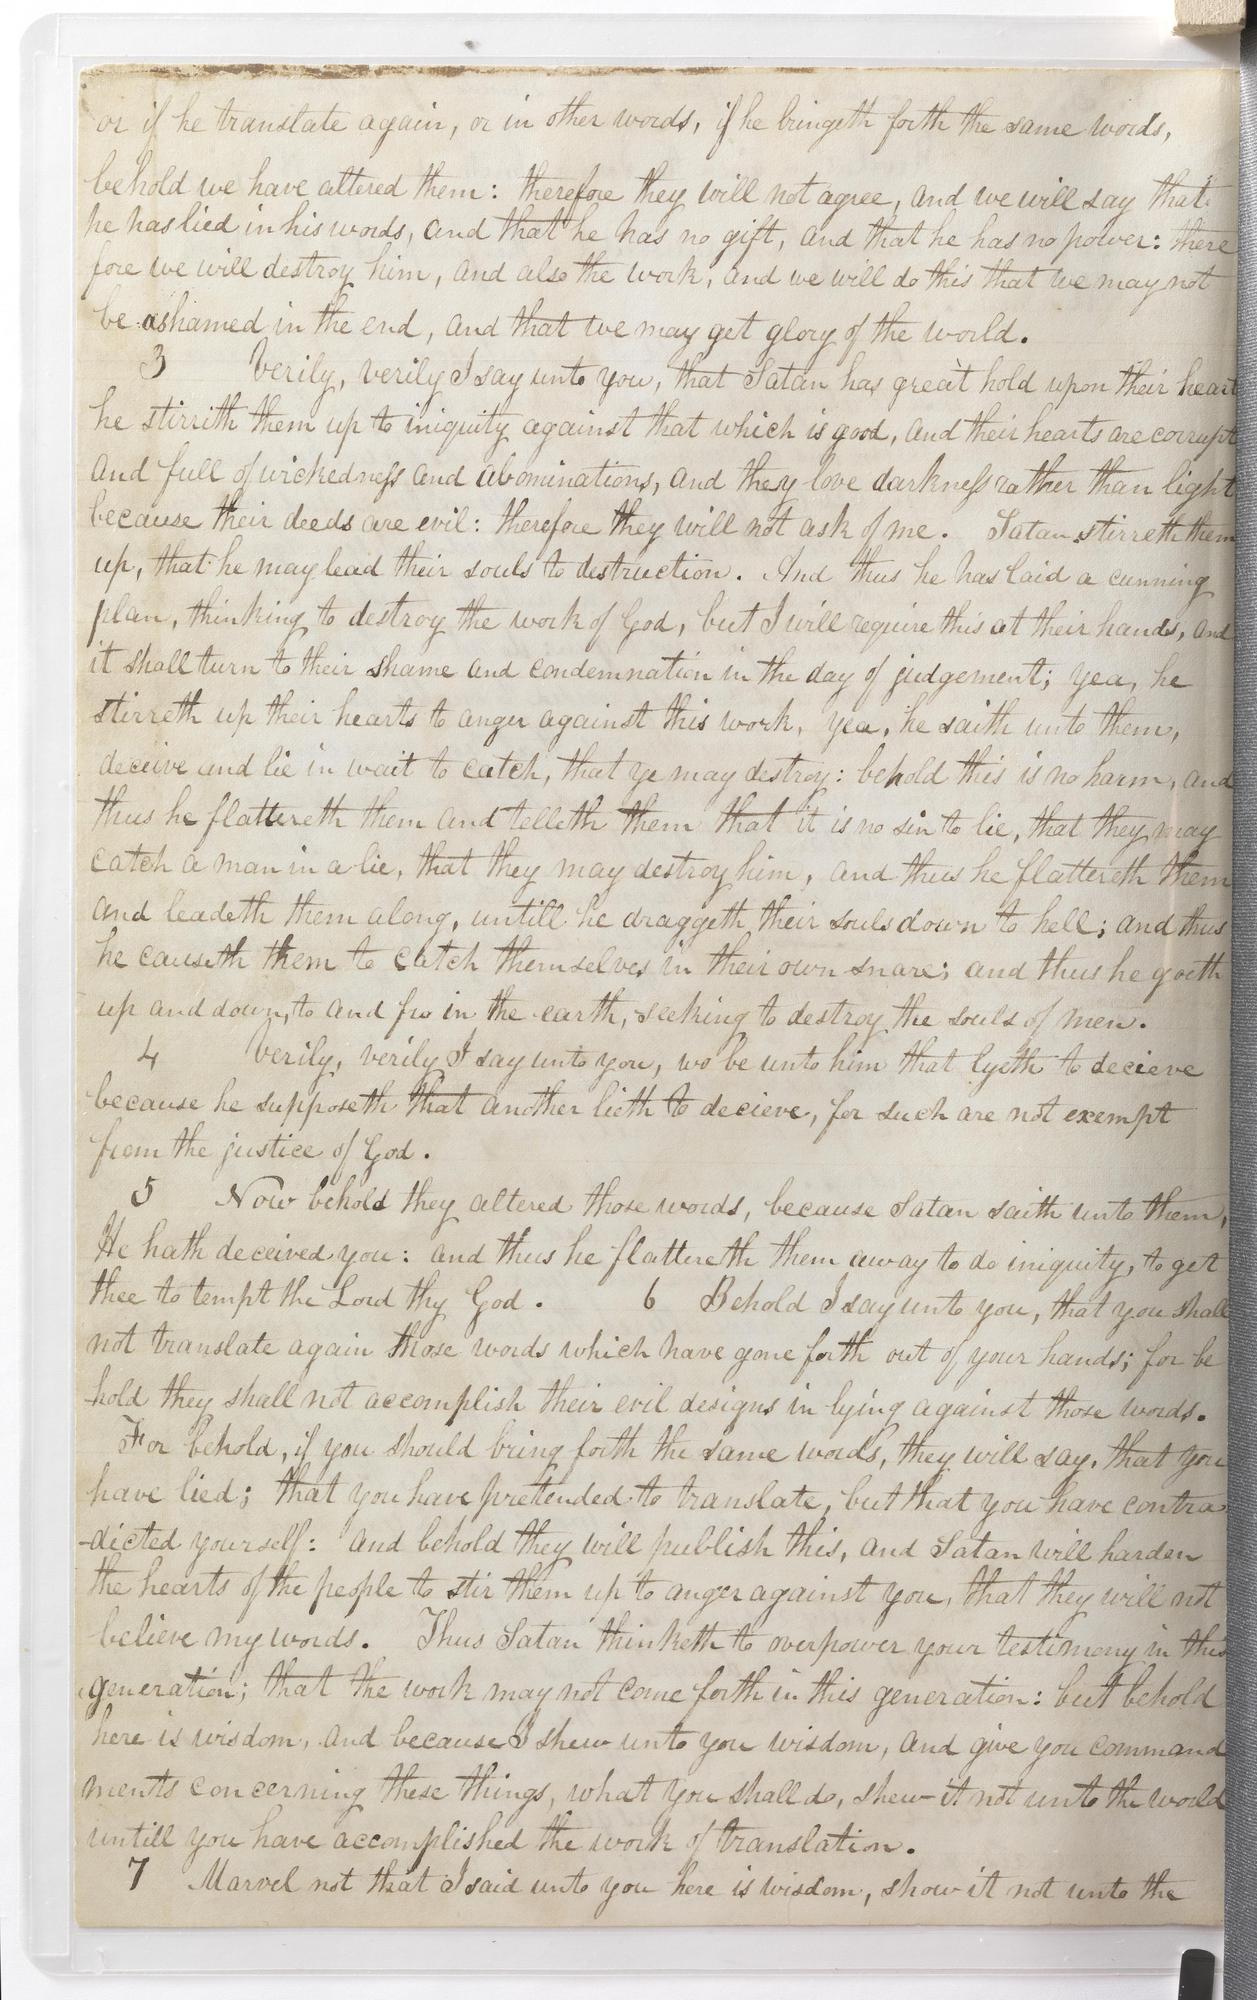 or if he translate again, or in other words, if he bringeth forth the same words,
behold we have altered them: therefore they will not agree, and we will say that
he has lied in his words, and that he has no gift, and that he has no power: there
fore we will destroy him, and also the work, and we will do this that we may not
be ashamed in the end, and that we may get glory of the world.
3 Verily, verily I say unto you, that Satan has great hold upon their heart
he stirrith them up to iniquity against that which is good, and their hearts are corrupt
and full of wickedness and abominations, and they love darkness rather than light
because their deeds are evil: therefore they will not ask of me. Satan stirreth them
up, that he may lead their souls to destruction. And thus he has laid a cunning
plan, thinking to destroy the work of God, but I will require this at their hands, and
it shall turn to their shame and condemnation in the day of judgement; yea, he
stirreth up their hearts to anger against this work, yea, he saith unto them,
deceive and lie in wait to catch, that ye may destroy: behold this is no harm, and
thus he flattereth them and telleth them that it is no sin to lie, that they may
catch a man in a lie, that they may destroy him, and thus he flattereth them
and leadeth them along, untill he draggeth their souls down to hell; and thus
he causeth them to catch themselves in their own snare; and thus he goeth
up and down, to and fro in the earth, seeking to destroy the souls of men.
4 Verily, verily I say unto you, wo be unto him that lyeth to decieve
because he supposeth that another lieth to decieve, for such are not exempt
from the justice of God.
5 Now behold they altered those words, because Satan saith unto them,
He hath deceived you: and thus he flattereth them away to do iniquity, to get
thee to tempt the Lord thy God. 6 Behold I say unto you, that you shall
not translate again those words which have gone forth out of your hands; for be
hold they shall not accomplish their evil designs in lying against those words.
For behold, if you should bring forth the same words, they will say, that you
have lied; that you have pretended to translate, but that you have contra
-dicted yourself: and behold they will publish this, and Satan will harden
the hearts of the people to stir them up to anger against you, that they will not
believe my words. Thus Satan thinketh to overpower your testimony in this
generation; that the work may not come forth in this generation: but behold
here is wisdom, and because I shew unto you wisdom, and give you command
ments concerning these things, what you shall do, shew it not unto the world
untill you have accomplished the work of translation.
7 Marvel not that I said unto you here is wisdom, show it not unto the